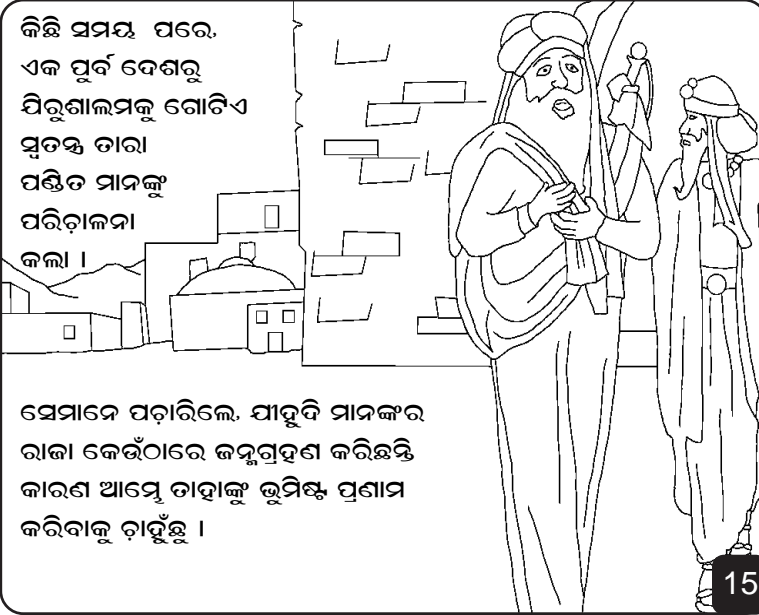 କିଛି ସମୟ ପରେ,
ଏକ ପୁର୍ବ ଦେଶରୁ
ଯିରୁଶାଲମକୁ ଗୋଟିଏ
ସ୍ୱତନ୍ତ୍ର ତାରା
ପଣ୍ଡିତ ମାନଙ୍କୁ
ପରିଚ଼ାଳନା
କଲା ।
ସେମାନେ ପଚ଼ାରିଲେ, ଯୀହୁଦି ମାନଙ୍କର
ରାଜା କେଉଁଠାରେ ଜନ୍ମଗ୍ରହଣ କରିଛନ୍ତି
କାରଣ ଆମ୍ଭେ ତାହାଙ୍କୁ ଭୁମିଷ୍ଟ ପ୍ରଣାମ
କରିବାକୁ ଚ଼ାହୁଁଛୁ ।
15